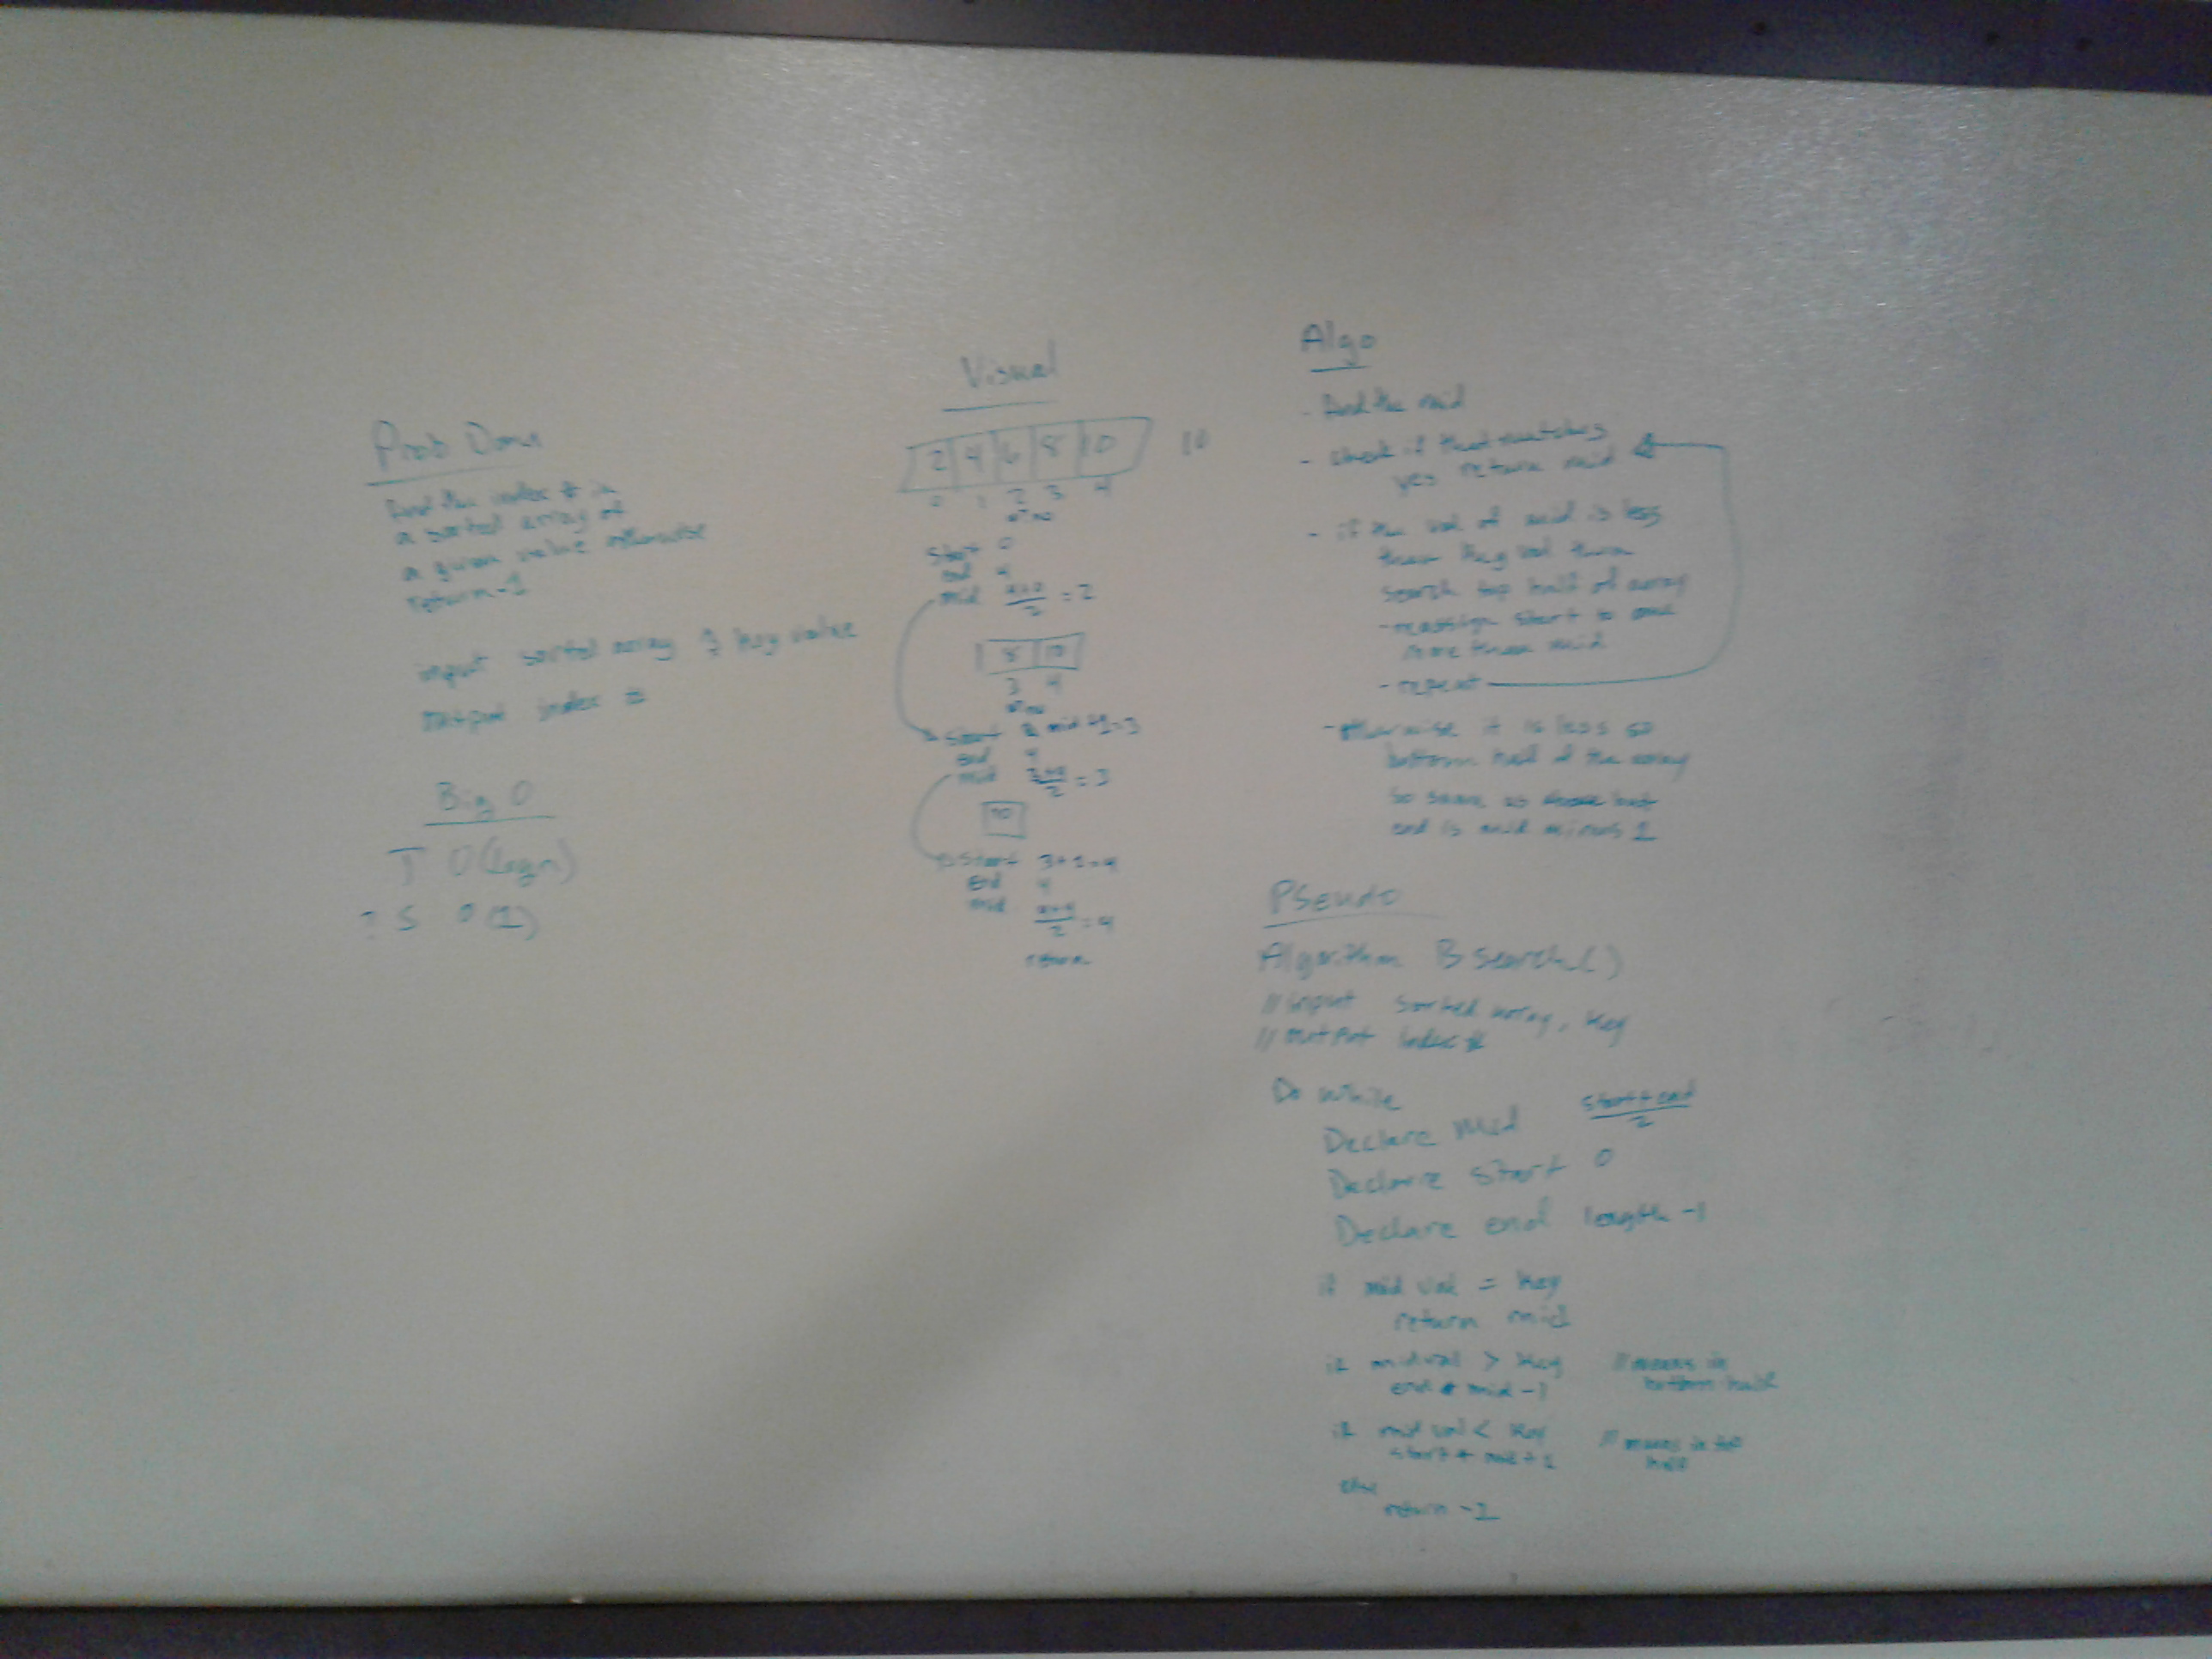 Prob Dom
find the index # in
a sorted array of
a given value otherwise
return -1
input sorted array & key value
output index #
Big O
T O(logn)
S O(1)
Visual
2 4 6 8 10 10
0 1 2 3 4
no
Start 0
end 4
mid 4+0/2 = 2
8 10
3 4
no
start mid +1=3
end 4
mid 3+4/2 = 3
10
Start 3+1=4
end 4
mid 4+4/2 = 4
return
Algo
- find the mid
- check if that matches
yes return mid
- if the val of mid is less
than key val then
search top half of array
- reassign start to one
more than mid
- repeat
- otherwise it is less so
bottom half of the array
so same as above but
end is mid minus 1
Pseudo
Algorithm Bsearch()
// input sorted array, key
// output index #
Do while
Declare Mid start + end/2
Declare Start 0
Declare end length -1
if mid val = key
return mid
if midval > key // means in
end ← mid -1 bottom half
if mid val < key // means in top
start ← mid + 1 half
else
return -1